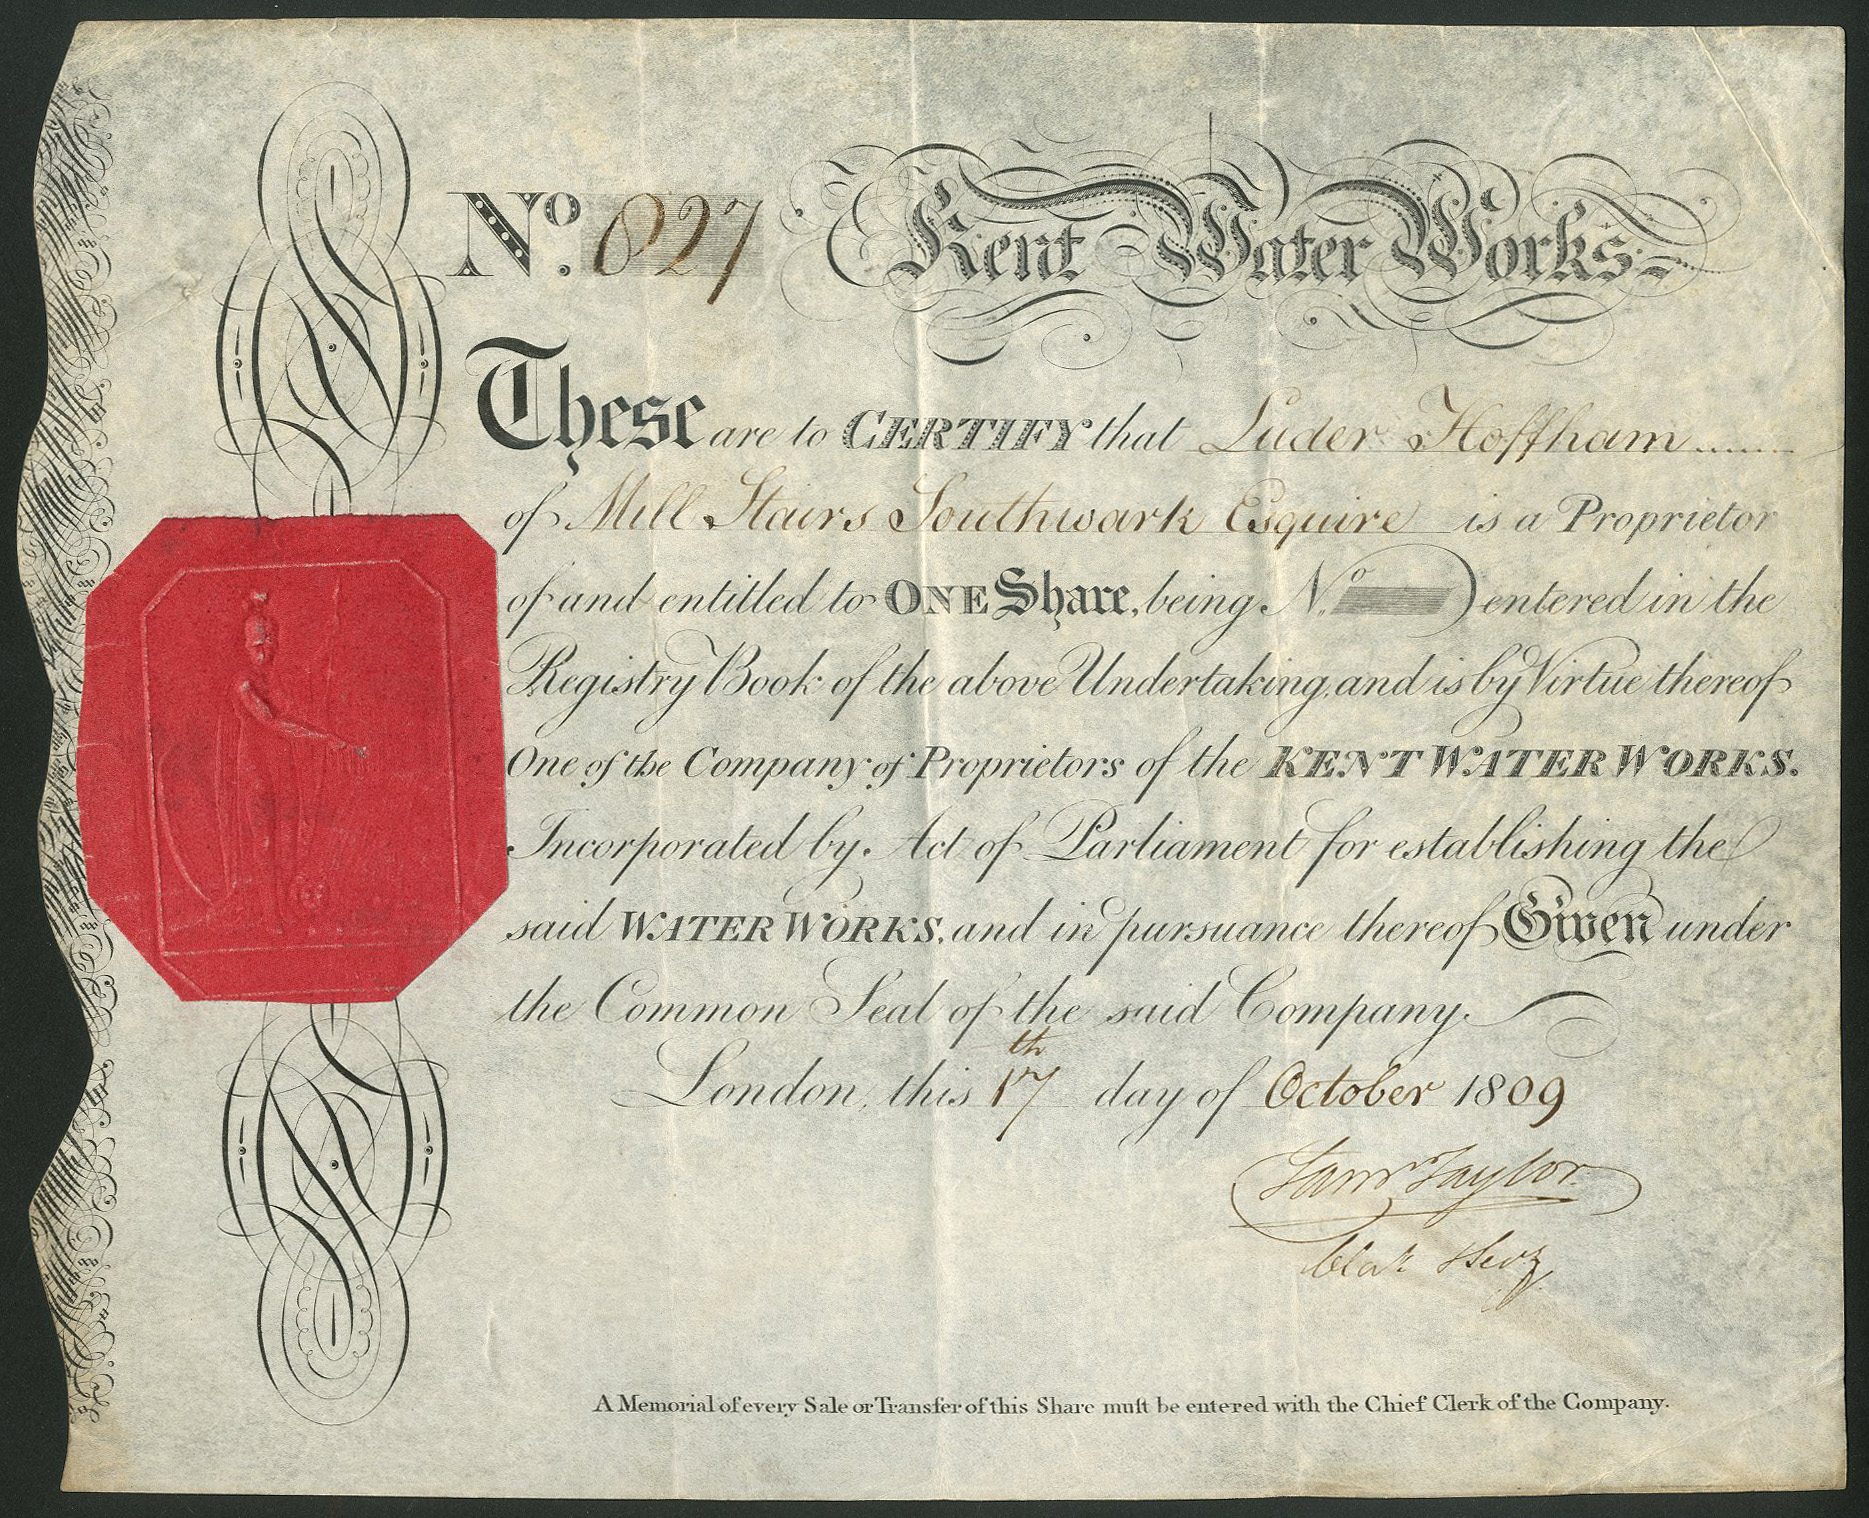 No. 827 Kent Water Works
These are to CERTIFY that Luder Hoffham
of Mill Stairs Southwark Esquire is a Proprietor
of and entitled to ONE Share, being No. entered in the
Registry Book of the above Undertaking, and is by Virtue thereof
One of the Company of Proprietors of the KENT WATER WORKS.
Incorporated by Act of Parliament for establishing the
said WATER WORKS, and in pursuance thereof Given under
the Common Seal of the said Company.
London, this 17th day of October 1809
Saml Taylor
A Memorial of every Sale or Transfer of this Share muſt be entered with the Chief Clerk of the Company.